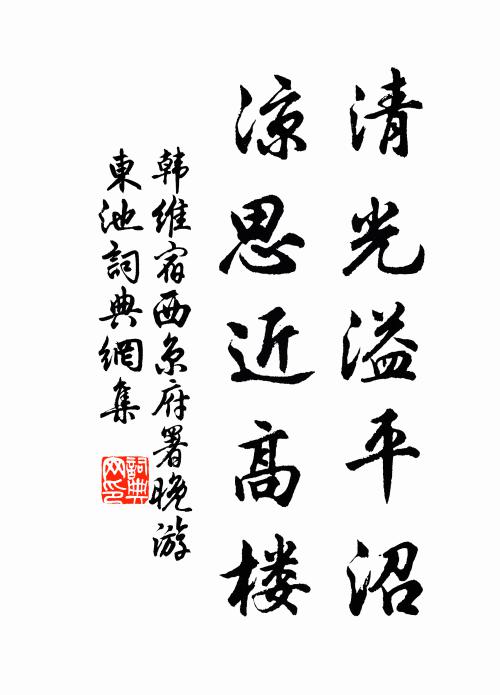 清光溢平沼
凉思近高楼
韩維宿西京府署晚游
東池詞典網集
詞典网印